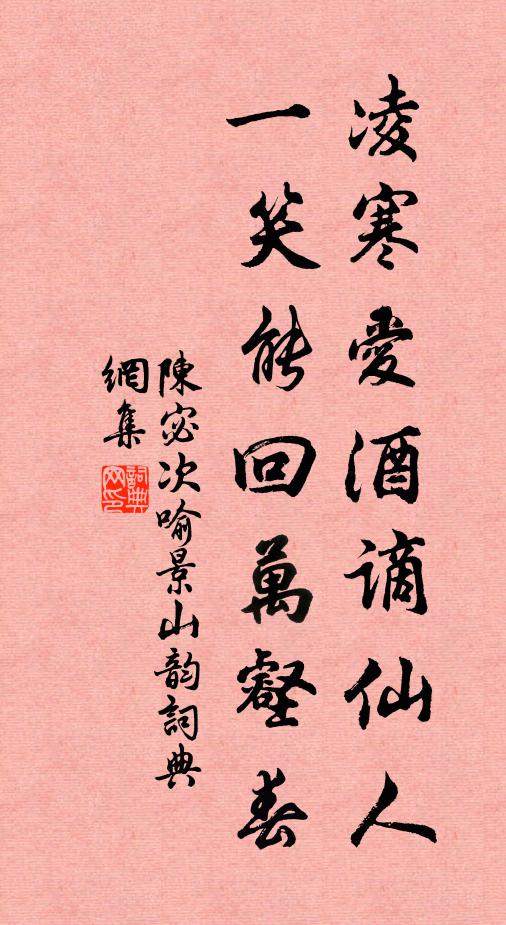 凌寒愛酒謫仙人
一笑能回萬壑春
陳宓次喻景山韵詞典
網集
詞典
网印